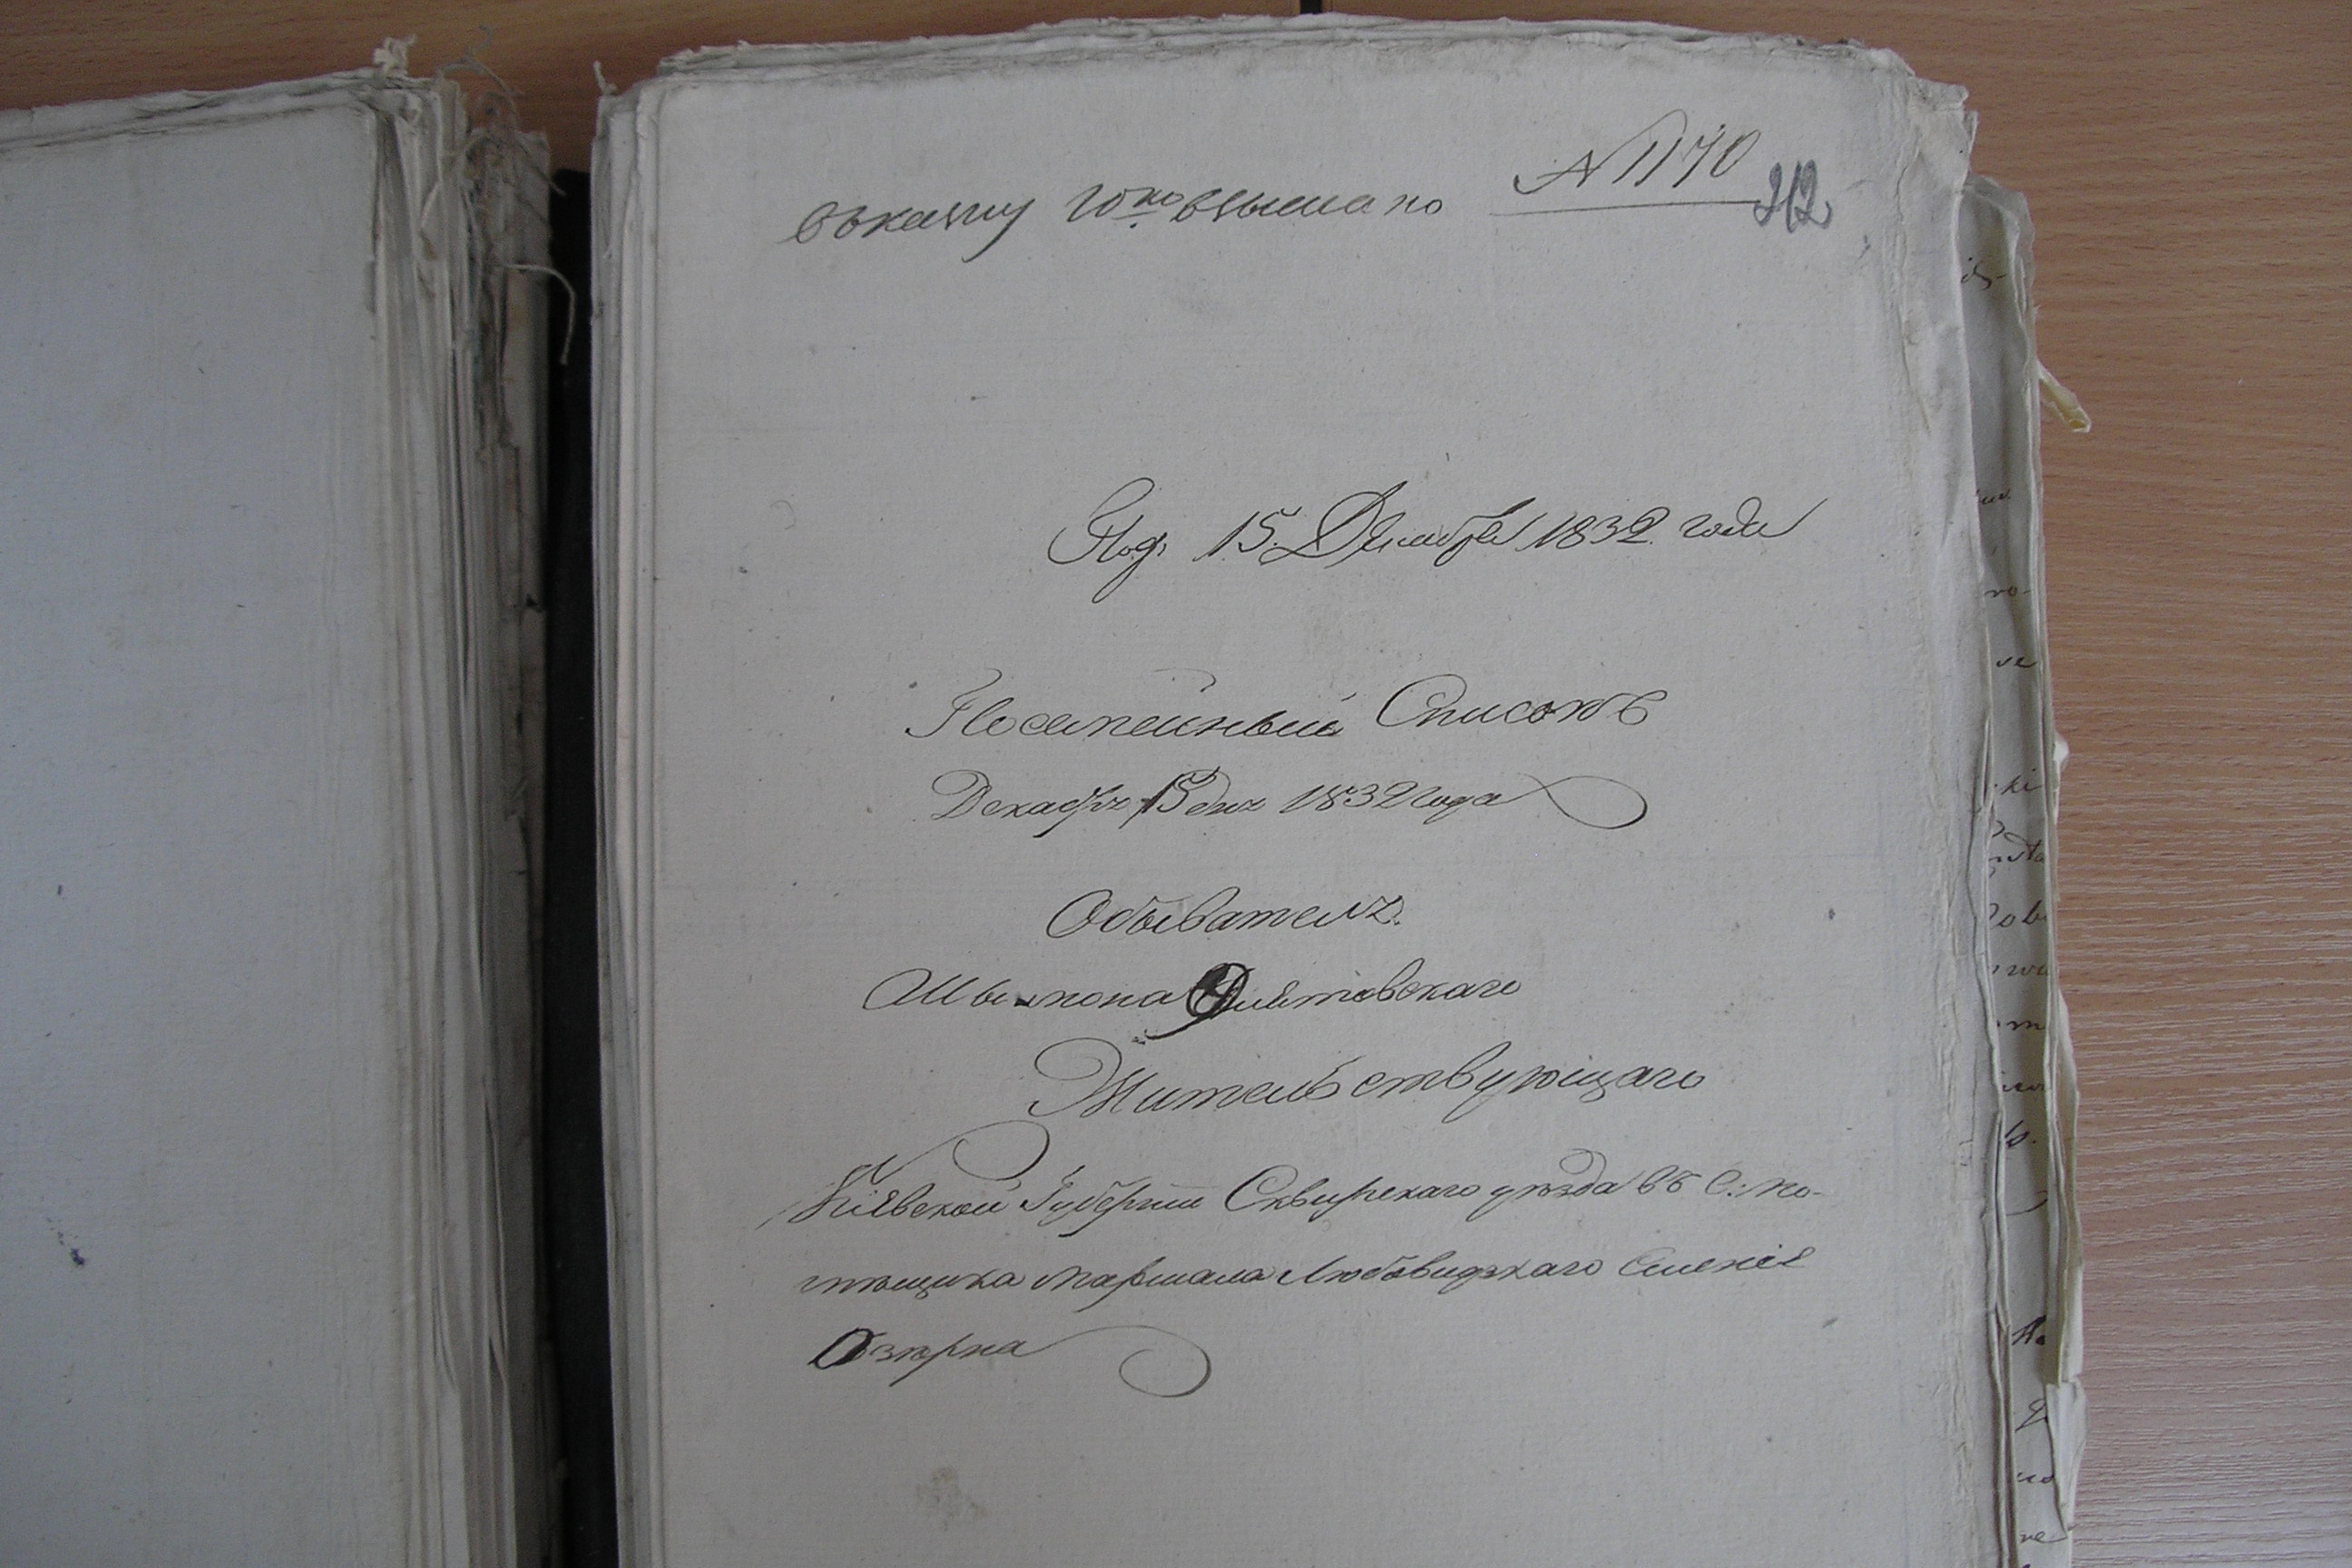 № 1170
312
Под. 15. Декабря 1832. года
Посемейный Списокъ
Декабря 15 дня 1832 года
Обывателя.
Шымона
Жительствующаго
Кіевской Губерніи Сквирскаго уѣзда въ С: по-
мѣщика маршала Любовидзкаго Именіе
Озѣрна